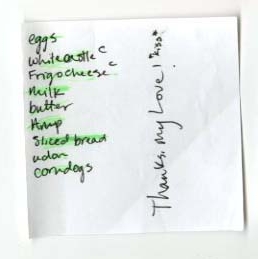 eggs
whitecastle c
Frigo cheese c
Milk
butter
Sliced bread
udon
corndogs
Thanks, My Love! *kiss*